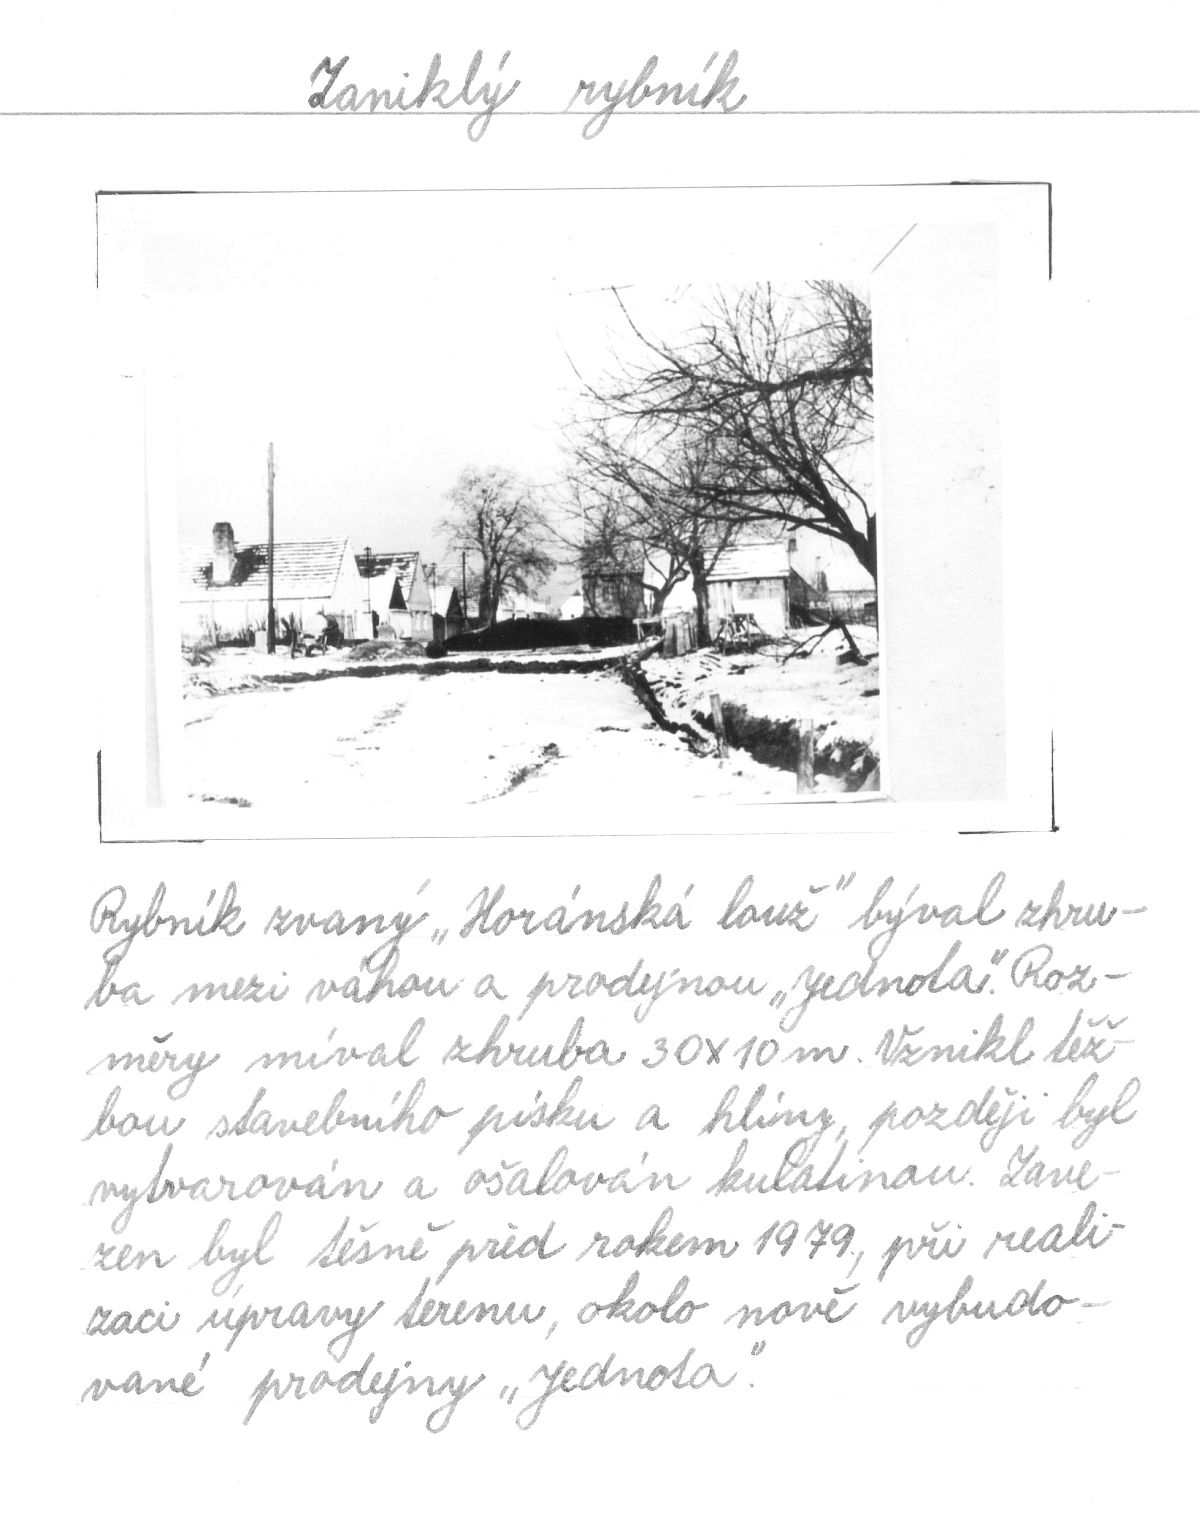 Zaniklý rybník
Rybník zvaný „Horánská louž" býval zhru-
ba mezi váhou a prodejnou „Jednota". Roz-
měry míval zhruba 30x10 m. Vznikl těž-
bou stavebního písku a hlíny, později byl
vytvarován a ošalován kulatinou. Zave-
zen byl těsně před rokem 1979, při reali-
zaci úpravy terenu, okolo nově vybudo-
vané prodejny „Jednota".